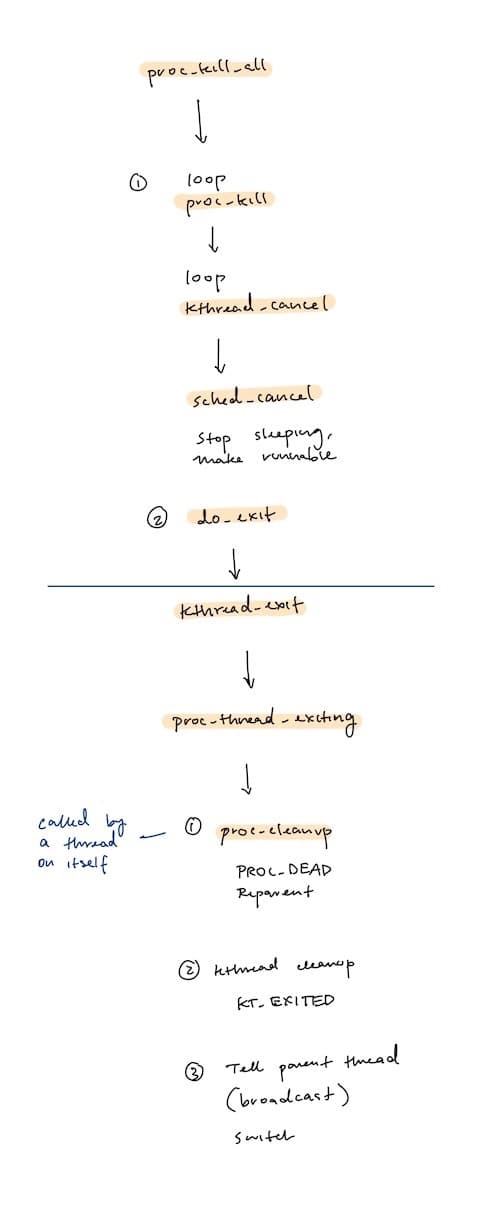 proc_kill_all
① loop
proc_kill
loop
kthread_cancel
sched_cancel
stop sleeping,
make runnable
② do_exit
kthread_exit
proc_thread_exiting
called by
a thread
on itself
① proc_cleanup
PROC_DEAD
Reparent
② kthread cleanup
KT_EXITED
③ Tell parent thread
(broadcast)
switch